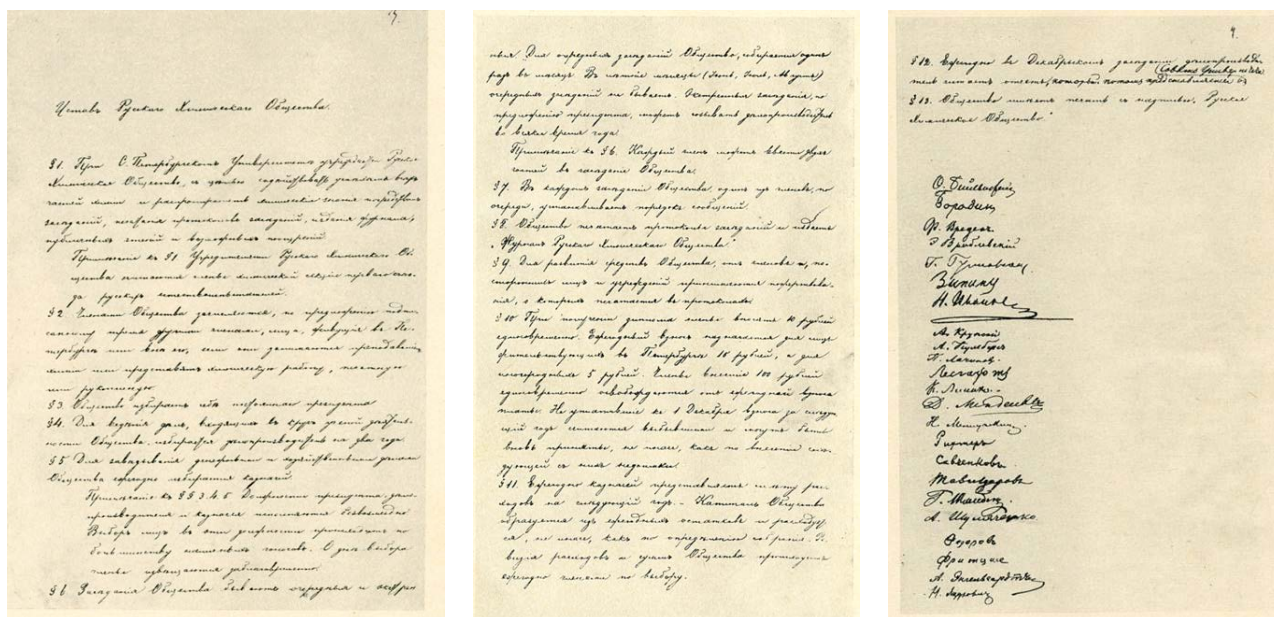 3.
Уставъ Русскаго Химическаго Общества.
§1. При С. Петербургскомъ Университетѣ учреждается Русское
Химическое Общество, съ цѣлью содѣйствовать успѣхамъ всѣхъ
частей химіи и распространять химическія знанія посредствомъ
засѣданій, печатанія протоколовъ засѣданій, изданія журнала,
публичныхъ чтеній и всевозможныхъ поощреній.
Примѣчаніе къ §1 Учредителями Русскаго Химическаго Об-
щества считаются члены химической секціи перваго съѣз-
да русскихъ естествоиспытателей.
§2. Членами Общества дѣлаются, по предложенію подпи-
санному тремя другими членами, лица, живущія въ Пе-
тербургѣ или внѣ его, если они занимаются преподаваніемъ
химіи или представятъ химическую работу, печатную
или рукописную.
§3. Общество избираетъ президента
§4. Для веденія дѣлъ, входящихъ въ кругъ дѣятель-
ности Общества, избирается дѣлопроизводитель на два года
§5 Для завѣдыванія денежными и хозяйственными дѣлами
Общества ежегодно избирается казначей.
Примѣчаніе къ §§ 3. 4. 5 Должности президента, дѣло-
производителя и казначея исполняются безвозмездно
Выборъ лицъ въ эти должности производится по
большинству голосовъ. О днѣ выбора
члены извѣщаются заблаговременно.
§6 Засѣданія Общества бываютъ очередныя и экстрен
ныя Для очередныхъ засѣданій Общество собирается одинъ
разъ въ мѣсяцъ. Въ лѣтніе мѣсяцы (Іюнь, Іюль, Августъ)
очередныхъ засѣданій не бываетъ. Экстренныя засѣданія, по
предложенію президента, можетъ созывать дѣлопроизводитель
во всякое время года.
Примѣчаніе къ §6. Каждый членъ можетъ ввести двухъ
гостей въ засѣданіе Общества.
§7. Въ каждомъ засѣданіи Общества, одинъ изъ членовъ, по
очереди, устанавливаетъ порядокъ сообщеній.
§8. Общество печатаетъ протоколы засѣданій и издаетъ
„Журналъ Русскаго Химическаго Общества"
§9. Для развитія средствъ Общества, отъ членовъ и по-
стороннихъ лицъ и учрежденій принимаются пожертвова-
нія, о которыхъ печатается въ протоколахъ.
§10 При полученіи диплома членъ вноситъ 10 рублей
единовременно. Ежегодный взносъ назначается для лицъ
жительствующихъ въ Петербургѣ 10 рублей, а для
иногородныхъ 5 рублей. Членъ внесшій 100 рублей
единовременно освобождается отъ ежегодной
платы. Не уплатившіе къ 1 Декабря взноса за текущ
щій годъ считаются выбывшими и могутъ быть
вновь приняты, не иначе, какъ по внесеніи слѣ-
дующей съ нихъ недоимки.
§11. Ежегодно казначей представляетъ смѣту рас-
ходовъ на слѣдующій годъ. - Капиталъ Общества
образуется изъ ежегодныхъ остатковъ и расходует-
ся, не иначе, какъ по опредѣленію собранія. Ре-
визія расходовъ и суммъ Общества производится
ежегодно членами по выбору.
4.
§12. Ежегодно въ Декабрьскомъ засѣданіи дѣлопроизводи-
тель читаетъ отчетъ, который потомъ представляется въ Совѣтъ Универ
§13. Общество имѣетъ печать съ надписью, Русское
Химическое Общество."
Ѳ. Бейльштейнъ
Бородинъ
Ф. Вреденъ
Э Вроблевскій
Г. Густавсонъ.
Зининъ
Н. Ильинъ
А. Крупскій
А. Кульбергъ
П. Лачиновъ.
Лесгафтъ
К. Лисенко.
Д. Менделѣевъ
Н. Меншуткинъ
Рихтеръ
Савченковъ.
Тавилдаровъ
Г. Шмидтъ.
Л. Шишковъ
Ѳедоровъ
Фритцше
А. Энгельгардтъ